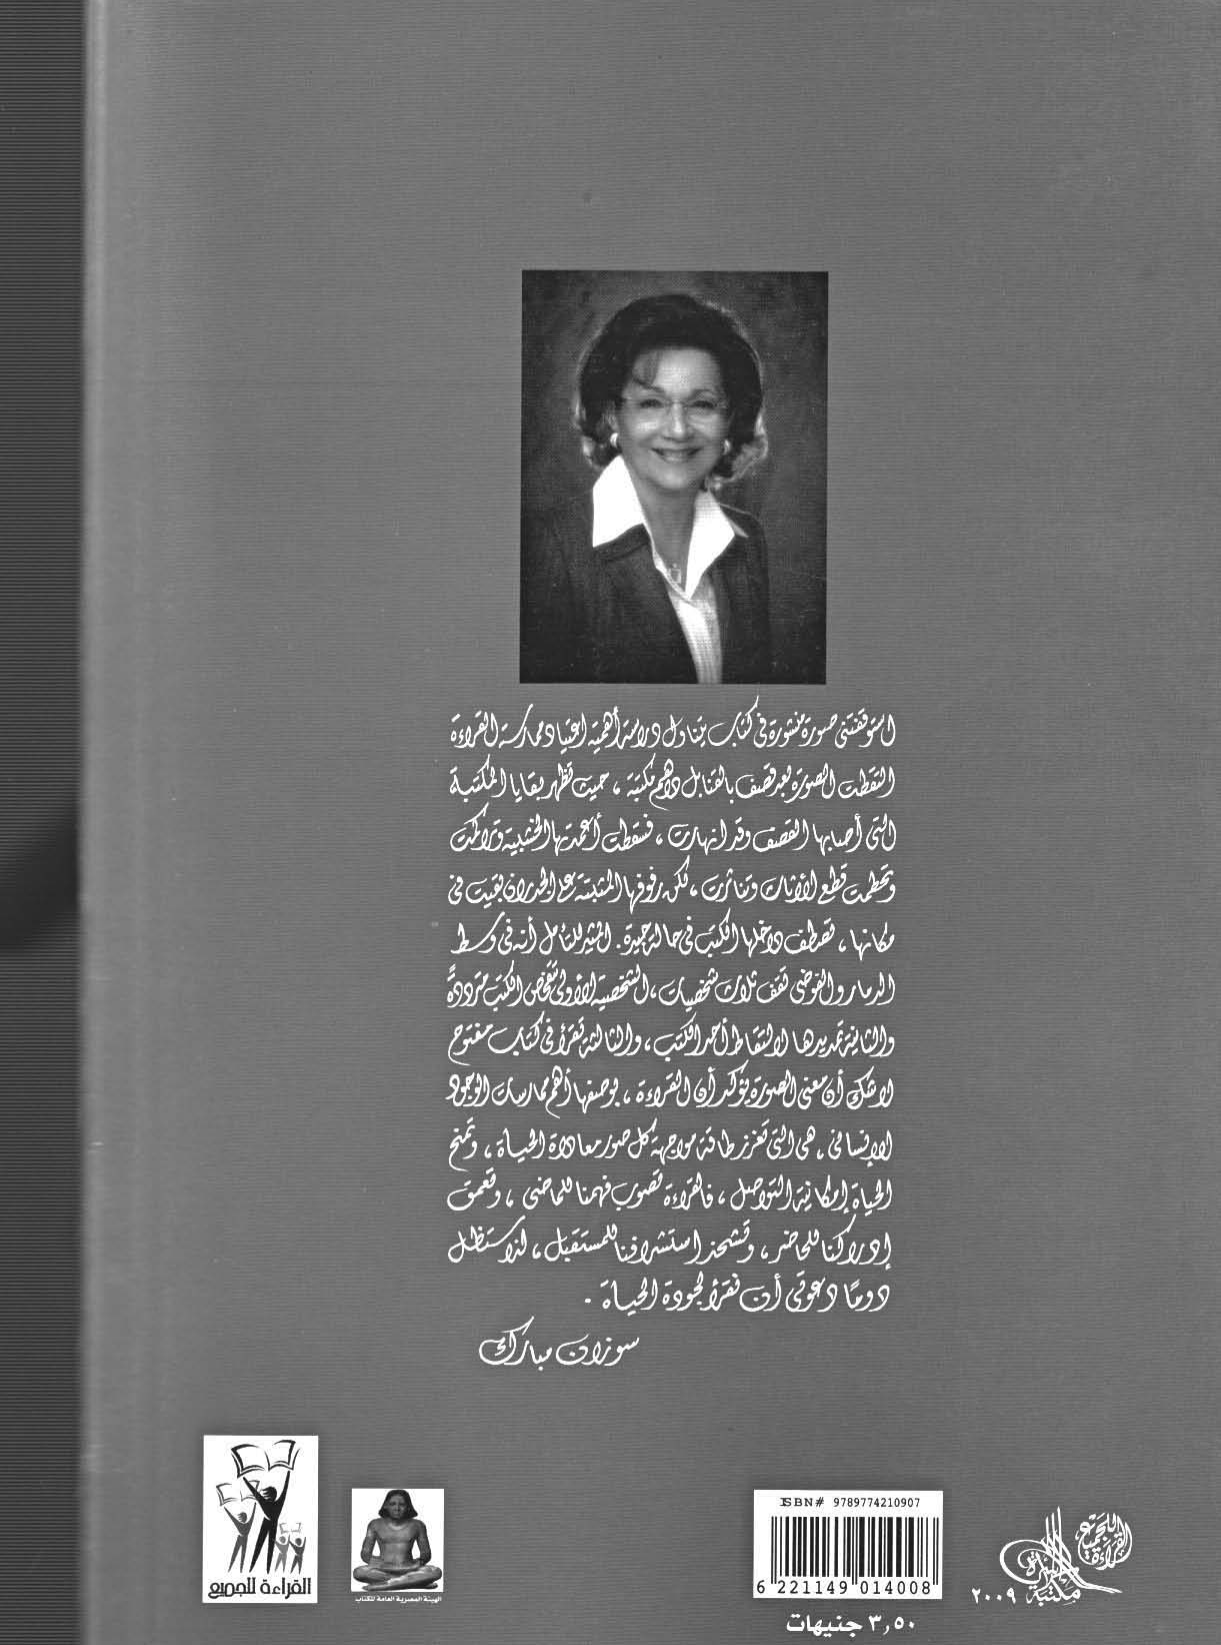 استوقفتنى صورة منشورة فى كتاب يتناول دراسة أهمية اعتياد ممارسة القراءة
التقطت الصورة بعد قصف بالقنابل داهم مكتبة ، حيث تظهر بقايا المكتبة
التى أصابها القصف وقد انهارت ، فسقطت أعمدتها الخشبية وتراكمت
وتحطمت قطع الأثاث وتناثرت ، لكن رفوفها المثبتة على الجدران بقيت فى
مكانها ، تصطف داخلها الكتب فى حالة جيدة . المثير للتأمل أنه فى وسط
الدمار والفوضى تقف ثلاث شخصيات ، الشخصية الأولى تتفحص الكتب مترددةً
والثانية تمد يدها لالتقاط أحد الكتب ، والثالثة تقرأ فى كتاب مفتوح
لا شك أن معنى الصورة يؤكد أن القراءة ، بوصفها أهم ممارسات الوجود
الإنسانى ، هى التى تعزز طاقة مواجهة كل صور معاداة الحياة ، وتمنح
الحياة إمكانية التواصل ، فالقراءة تصوب فهمنا للماضى ، وتعمق
إدراكنا للحاضر ، وتشحذ استشرافنا للمستقبل ، لذا ستظل
دومًا دعوتى أن نقرأ لجودة الحياة .
سوزان مبارك
القراءة للجميع
الهيئة المصرية العامة للكتاب
ISBN# 9789774210907
6 221149 014008
٣,٥٠ جنيهات
القراءة للجميع
مكتبة الأسرة
٢٠٠٩